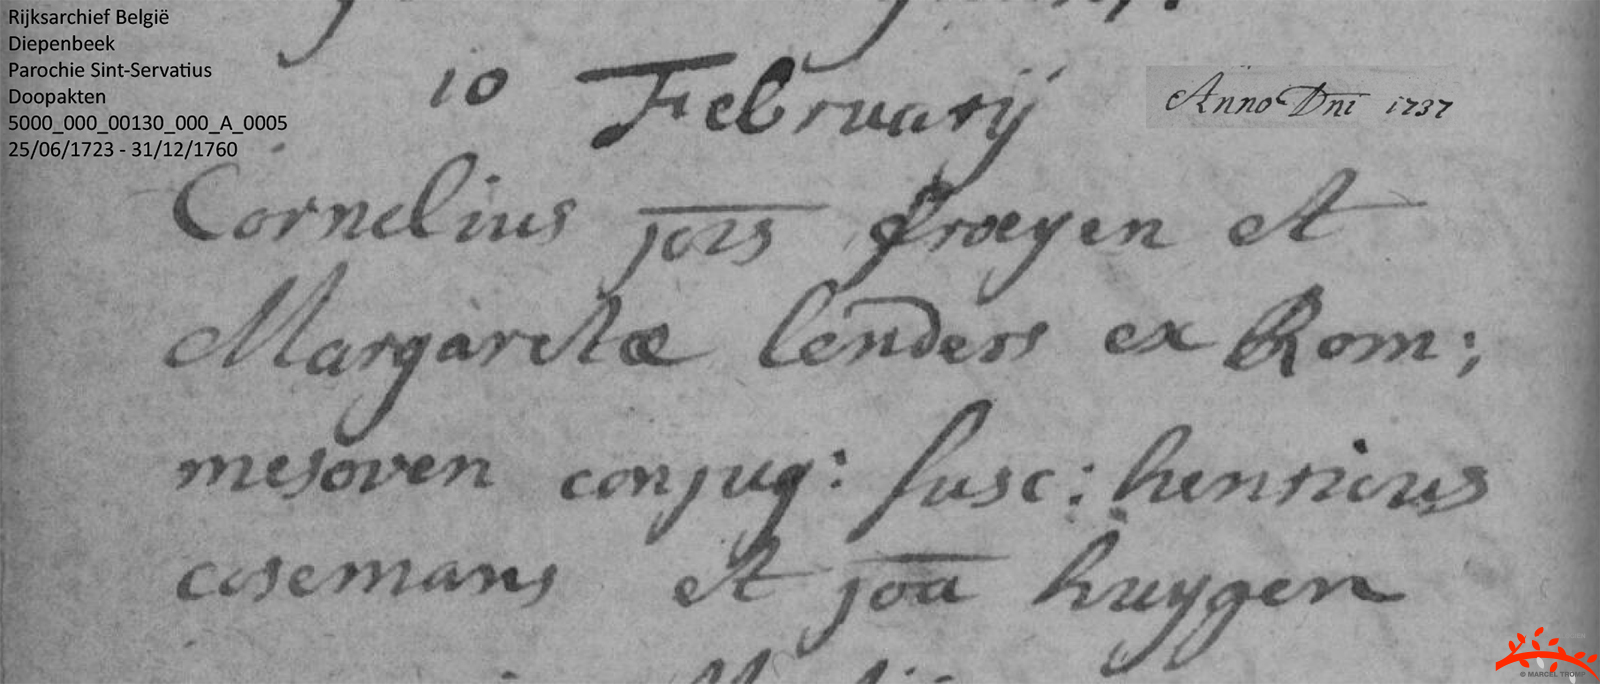 Rijksarchief België
Diepenbeek
Parochie Sint-Servatius
Doopakten
5000_000_00130_000_A_0005
25/06/1723 - 31/12/1760
10 Februarij
Anno Dni 1737
Cornelius jois froeyen et
Margaretæ lenders ex Rom;
mesoven conjug: susc: henricus
cosemans et joa huygen
© MARCEL TROMP